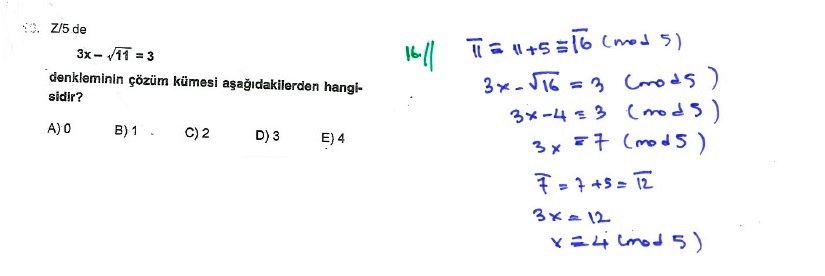 Z/5 de
3x – √11 = 3
denkleminin çözüm kümesi aşağıdakilerden hangi-
sidir?
A) 0 B) 1 C) 2 D) 3 E) 4
16//
11̅ ≡ 11+5 ≡ 16̅ (mod 5)
3x - √16 ≡ 3 (mod 5)
3x - 4 ≡ 3 (mod 5)
3x ≡ 7 (mod 5)
7̅ = 7 +5 = 12̅
3x = 12
x ≡ 4 (mod 5)